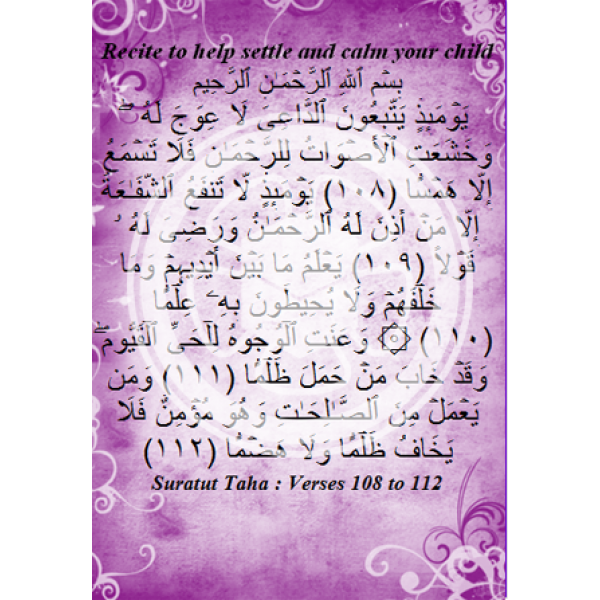 Recite to help settle and calm your child
بِسۡمِ ٱللهِ ٱلرَّحۡمَـٰنِ ٱلرَّحِيمِ
يَوۡمَٮِٕذٍ يَتَّبِعُونَ ٱلدَّاعِىَ لَا عِوَجَ لَهُ ۥ‌ۖ
وَخَشَعَتِ ٱلۡأَصۡوَاتُ لِلرَّحۡمَـٰنِ فَلَا تَسۡمَعُ
إِلَّا هَمۡسًا (١٠٨) يَوۡمَٮِٕذٍ لَّا تَنفَعُ ٱلشَّفَـٰعَةُ
إِلَّا مَنۡ أَذِنَ لَهُ ٱلرَّحۡمَـٰنُ وَرَضِىَ لَهُ ۥ
قَوۡلاً (١٠٩) يَعۡلَمُ مَا بَيۡنَ أَيۡدِيہِمۡ وَمَا
خَلۡفَهُمۡ وَلَا يُحِيطُونَ بِهِۦ عِلۡمًا
(١١٠) ۞ وَعَنَتِ ٱلۡوُجُوهُ لِلۡحَىِّ ٱلۡقَيُّومِ‌ۖ
وَقَدۡ خَابَ مَنۡ حَمَلَ ظُلۡمًا (١١١) وَمَن
يَعۡمَلۡ مِنَ ٱلصَّـٰلِحَـٰتِ وَهُوَ مُؤۡمِنٌ فَلَا
يَخَافُ ظُلۡمًا وَلَا هَضۡمًا (١١٢)
Suratut Taha : Verses 108 to 112